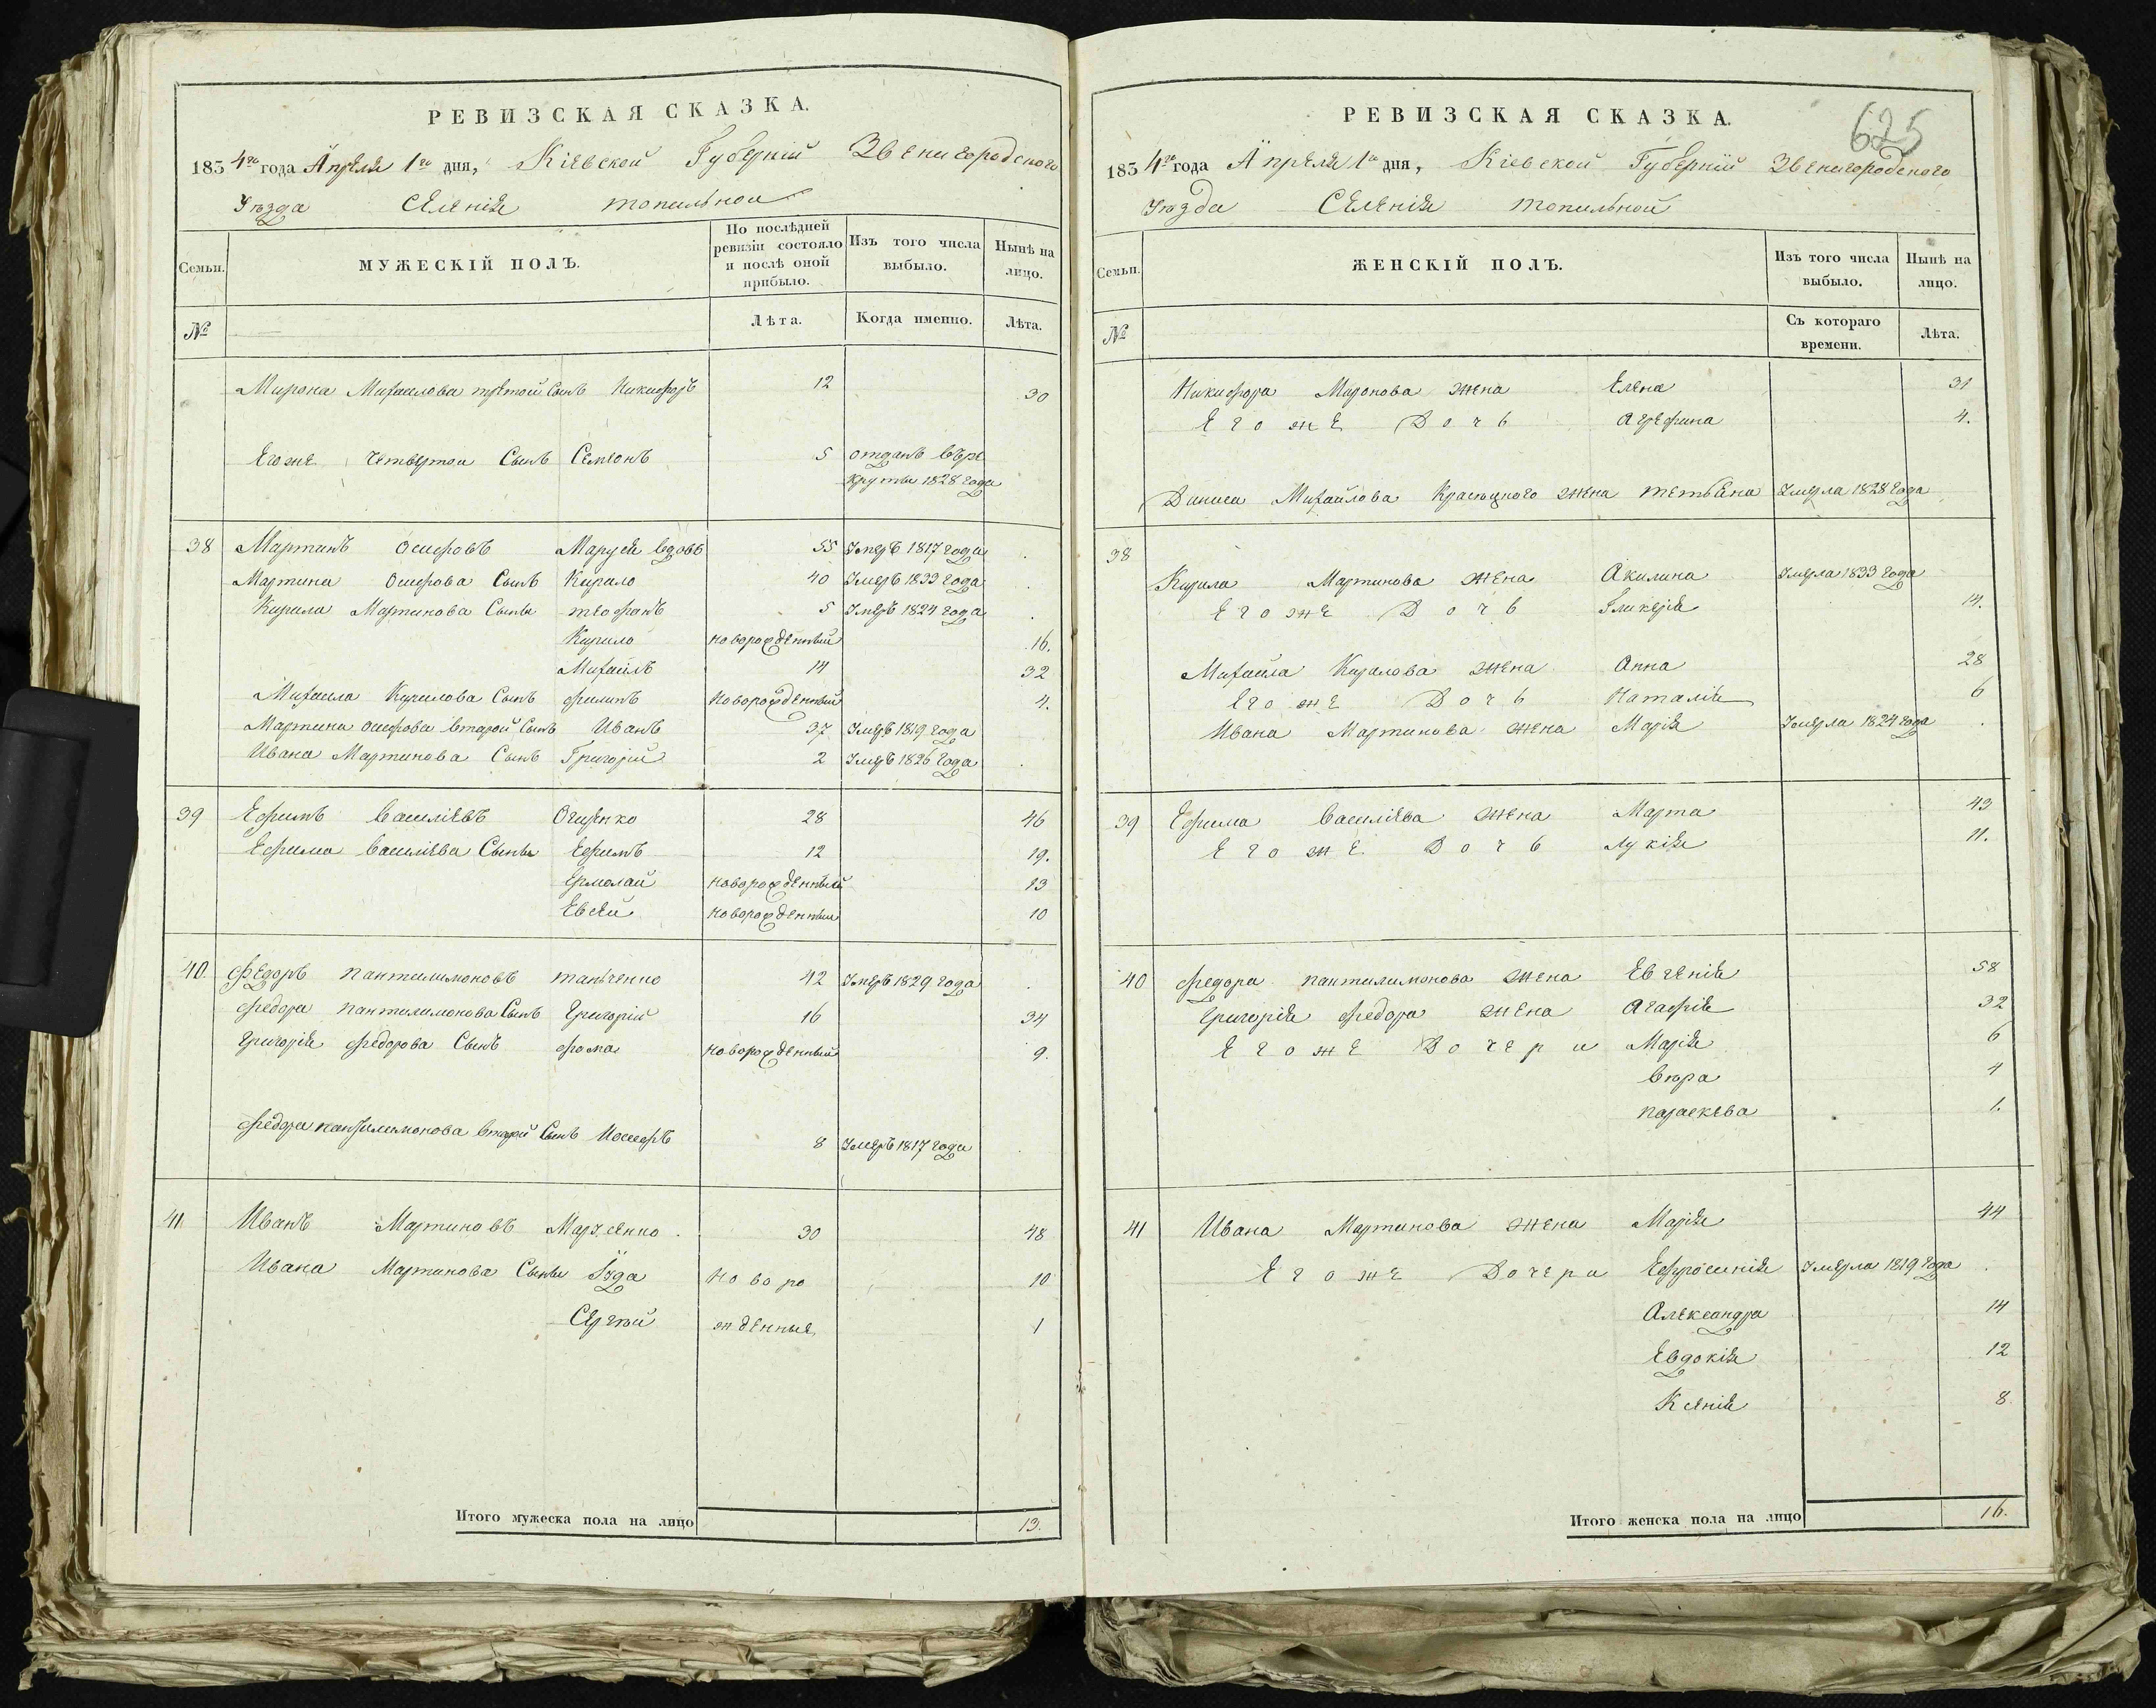 РЕВИЗСКАЯ СКАЗКА.
1834го года Апреля 1го дня, Кіевской Губерніи Звенигородского
Уѣзда Селенія топильной
Семьи.
МУЖЕСКІЙ ПОЛЪ.
По послѣдней ревизіи состояло и послѣ оной прибыло.
Изъ того числа выбыло.
Нынѣ на лицо.
№
Лѣта.
Когда именно.
Лѣта.
Мирона Михаилова третой Сынъ Никифоръ 12 30
Егоже четвертои Сынъ Семіонъ 5 отданъ върe
круты 1828 года
38 Мартинъ Осиповъ 55 Умеръ 1817 года
Мартина Осифова Сынъ Кирило 40 Умеръ 1833 года
Кирила Мартинова Сыны теофанъ 5 Умеръ 1824 года
Кирило новорожденный 16.
Михаилъ 14 32
Михаила Кирилова Сынъ филипъ новорожденный 4.
Мартина Осифова второй Сынъ Иванъ 37 Умеръ 1819 года
Ивана Мартинова Сынъ Григорій 2 Умеръ 1826 года
39 Ефимъ Василіевъ 28 46
Ефима Василіева Сыны Ефимъ 12 19.
Ермолай новорожденный 13
Евсей новорожденный 10
40. Федоръ пантилимоновъ танченко 42 Умеръ 1829 года
федора пантилимонова Сынъ Григорій 16 34
Григорія федорова Сынъ фома новорожденный 9.
федора пантилимонова вторій Сынъ Иосифъ 8 Умеръ 1817 года
41. Иванъ Мартиновъ Марченко 30 48
Ивана Мартинова Сыны Іуда новоро 10
Сергѣй жденные 1
Итого мужеска пола на лицо 13.
625
РЕВИЗСКАЯ СКАЗКА.
1834го года Апреля 1го дня, Кіевской Губерніи Звенигородского
Уѣзда Селенія топильной
Семьи.
ЖЕНСКІЙ ПОЛЪ.
Изъ того числа выбыло.
Нынѣ на лицо.
№
Съ котораго времени.
Лѣта.
Никифора Миронова жена Елена 31
Егоже Дочь Агрефина 4.
Михайлова жена тетьяна Умерла 1828 года
38
Кирила Мартинова жена Акилина Умерла 1833 года
Егоже Дочь Гликерія 14.
Михайла Кирилова жена Анна 28
Егоже Дочь Наталія 6
Ивана Мартинова жена Марія Умерла 1824 года
39 Ефима Василіева жена Марта 43
Егоже Дочь Лукія 11.
40 федора пантилимонова жена Евгенія 58
Григорія федора жена Агафія 32
Егоже Дочери Марія 6
Вѣра 4
параскева 1.
41 Ивана Мартинова жена Марія 44
Егоже Дочери Ефросинія Умерла 1819 года
Александра 14
Евдокія 12
Ксенія 8
Итого женска пола на лицо 16.